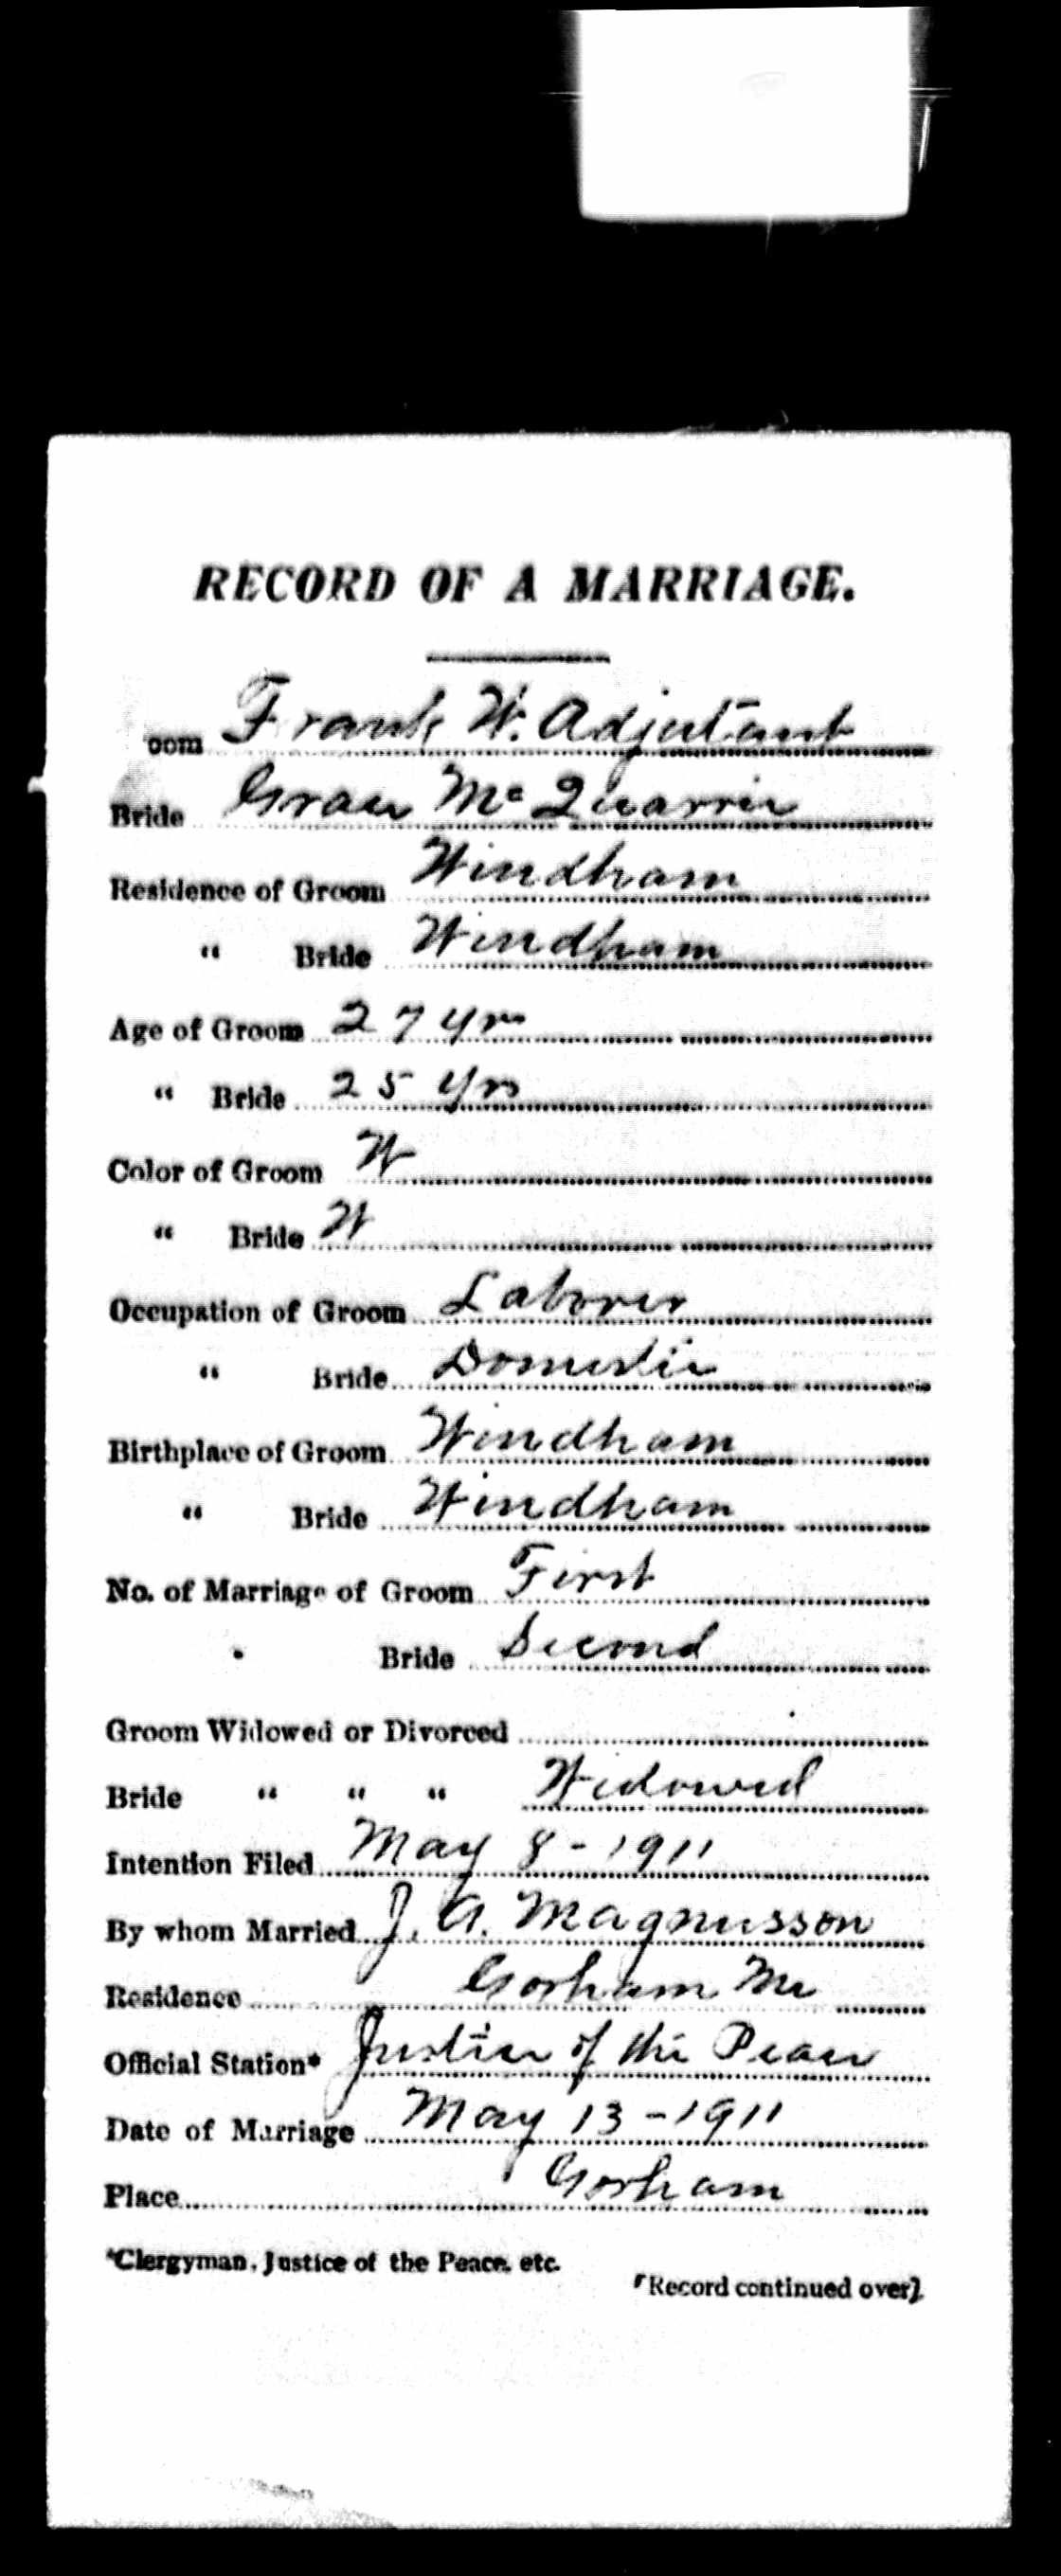 RECORD OF A MARRIAGE.
oom Frank W. Adjutant
Bride Grace Mc Quarrie
Residence of Groom Windham
" Bride Windham
Age of Groom 27 yrs
" Bride 25 yrs
Color of Groom W
" Bride W
Occupation of Groom Laborer
" Bride Domestic
Birthplace of Groom Windham
" Bride Windham
No. of Marriage of Groom First
" Bride Second
Groom Widowed or Divorced
Bride " " " Widowed
Intention Filed May 8-1911
By whom Married J. A. Magnusson
Residence Gorham Me
Official Station* Justice of the Peace
Date of Marriage May 13-1911
Place Gorham
*Clergyman, Justice of the Peace, etc.
[Record continued over]